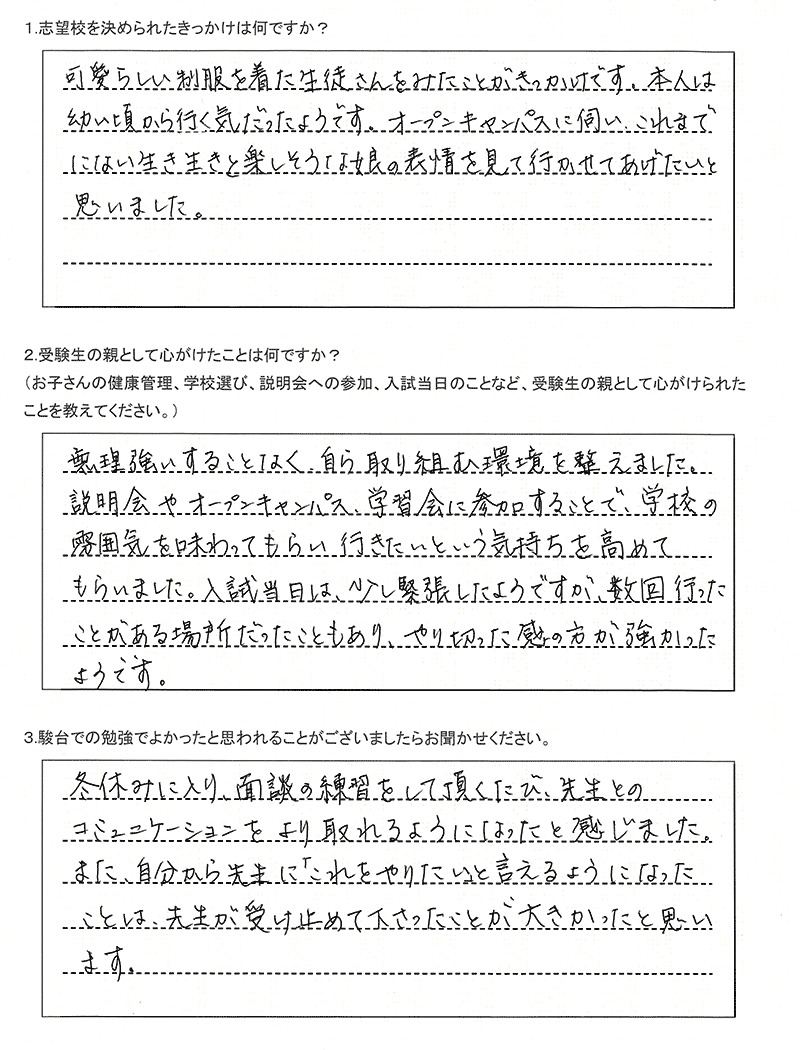 1.志望校を決められたきっかけは何ですか？
可愛らしい制服を着た生徒さんをみたことがきっかけです。本人は
幼い頃から行く気だったようです。オープンキャンパスに伺い、これまで
にない生き生きと楽しそうな娘の表情を見て行かせてあげたいと
思いました。
2.受験生の親として心がけたことは何ですか？
（お子さんの健康管理、学校選び、説明会への参加、入試当日のことなど、受験生の親として心がけられた
ことを教えてください。）
無理強いすることなく、自ら取り組む環境を整えました。
説明会やオープンキャンパス、学習会に参加することで、学校の
雰囲気を味わってもらい行きたいという気持ちを高めて
もらいました。入試当日は、少し緊張したようですが、数回行った
ことがある場所だったこともあり、やり切った感の方が強かった
ようです。
3.駿台での勉強でよかったと思われることがございましたらお聞かせください。
冬休みに入り、面談の練習をして頂くたび、先生との
コミュニケーションをより取れるようになったと感じました。
また、自分から先生に「これをやりたい」と言えるようになった
ことは、先生が受け止めて下さったことが大きかったと思い
ます。